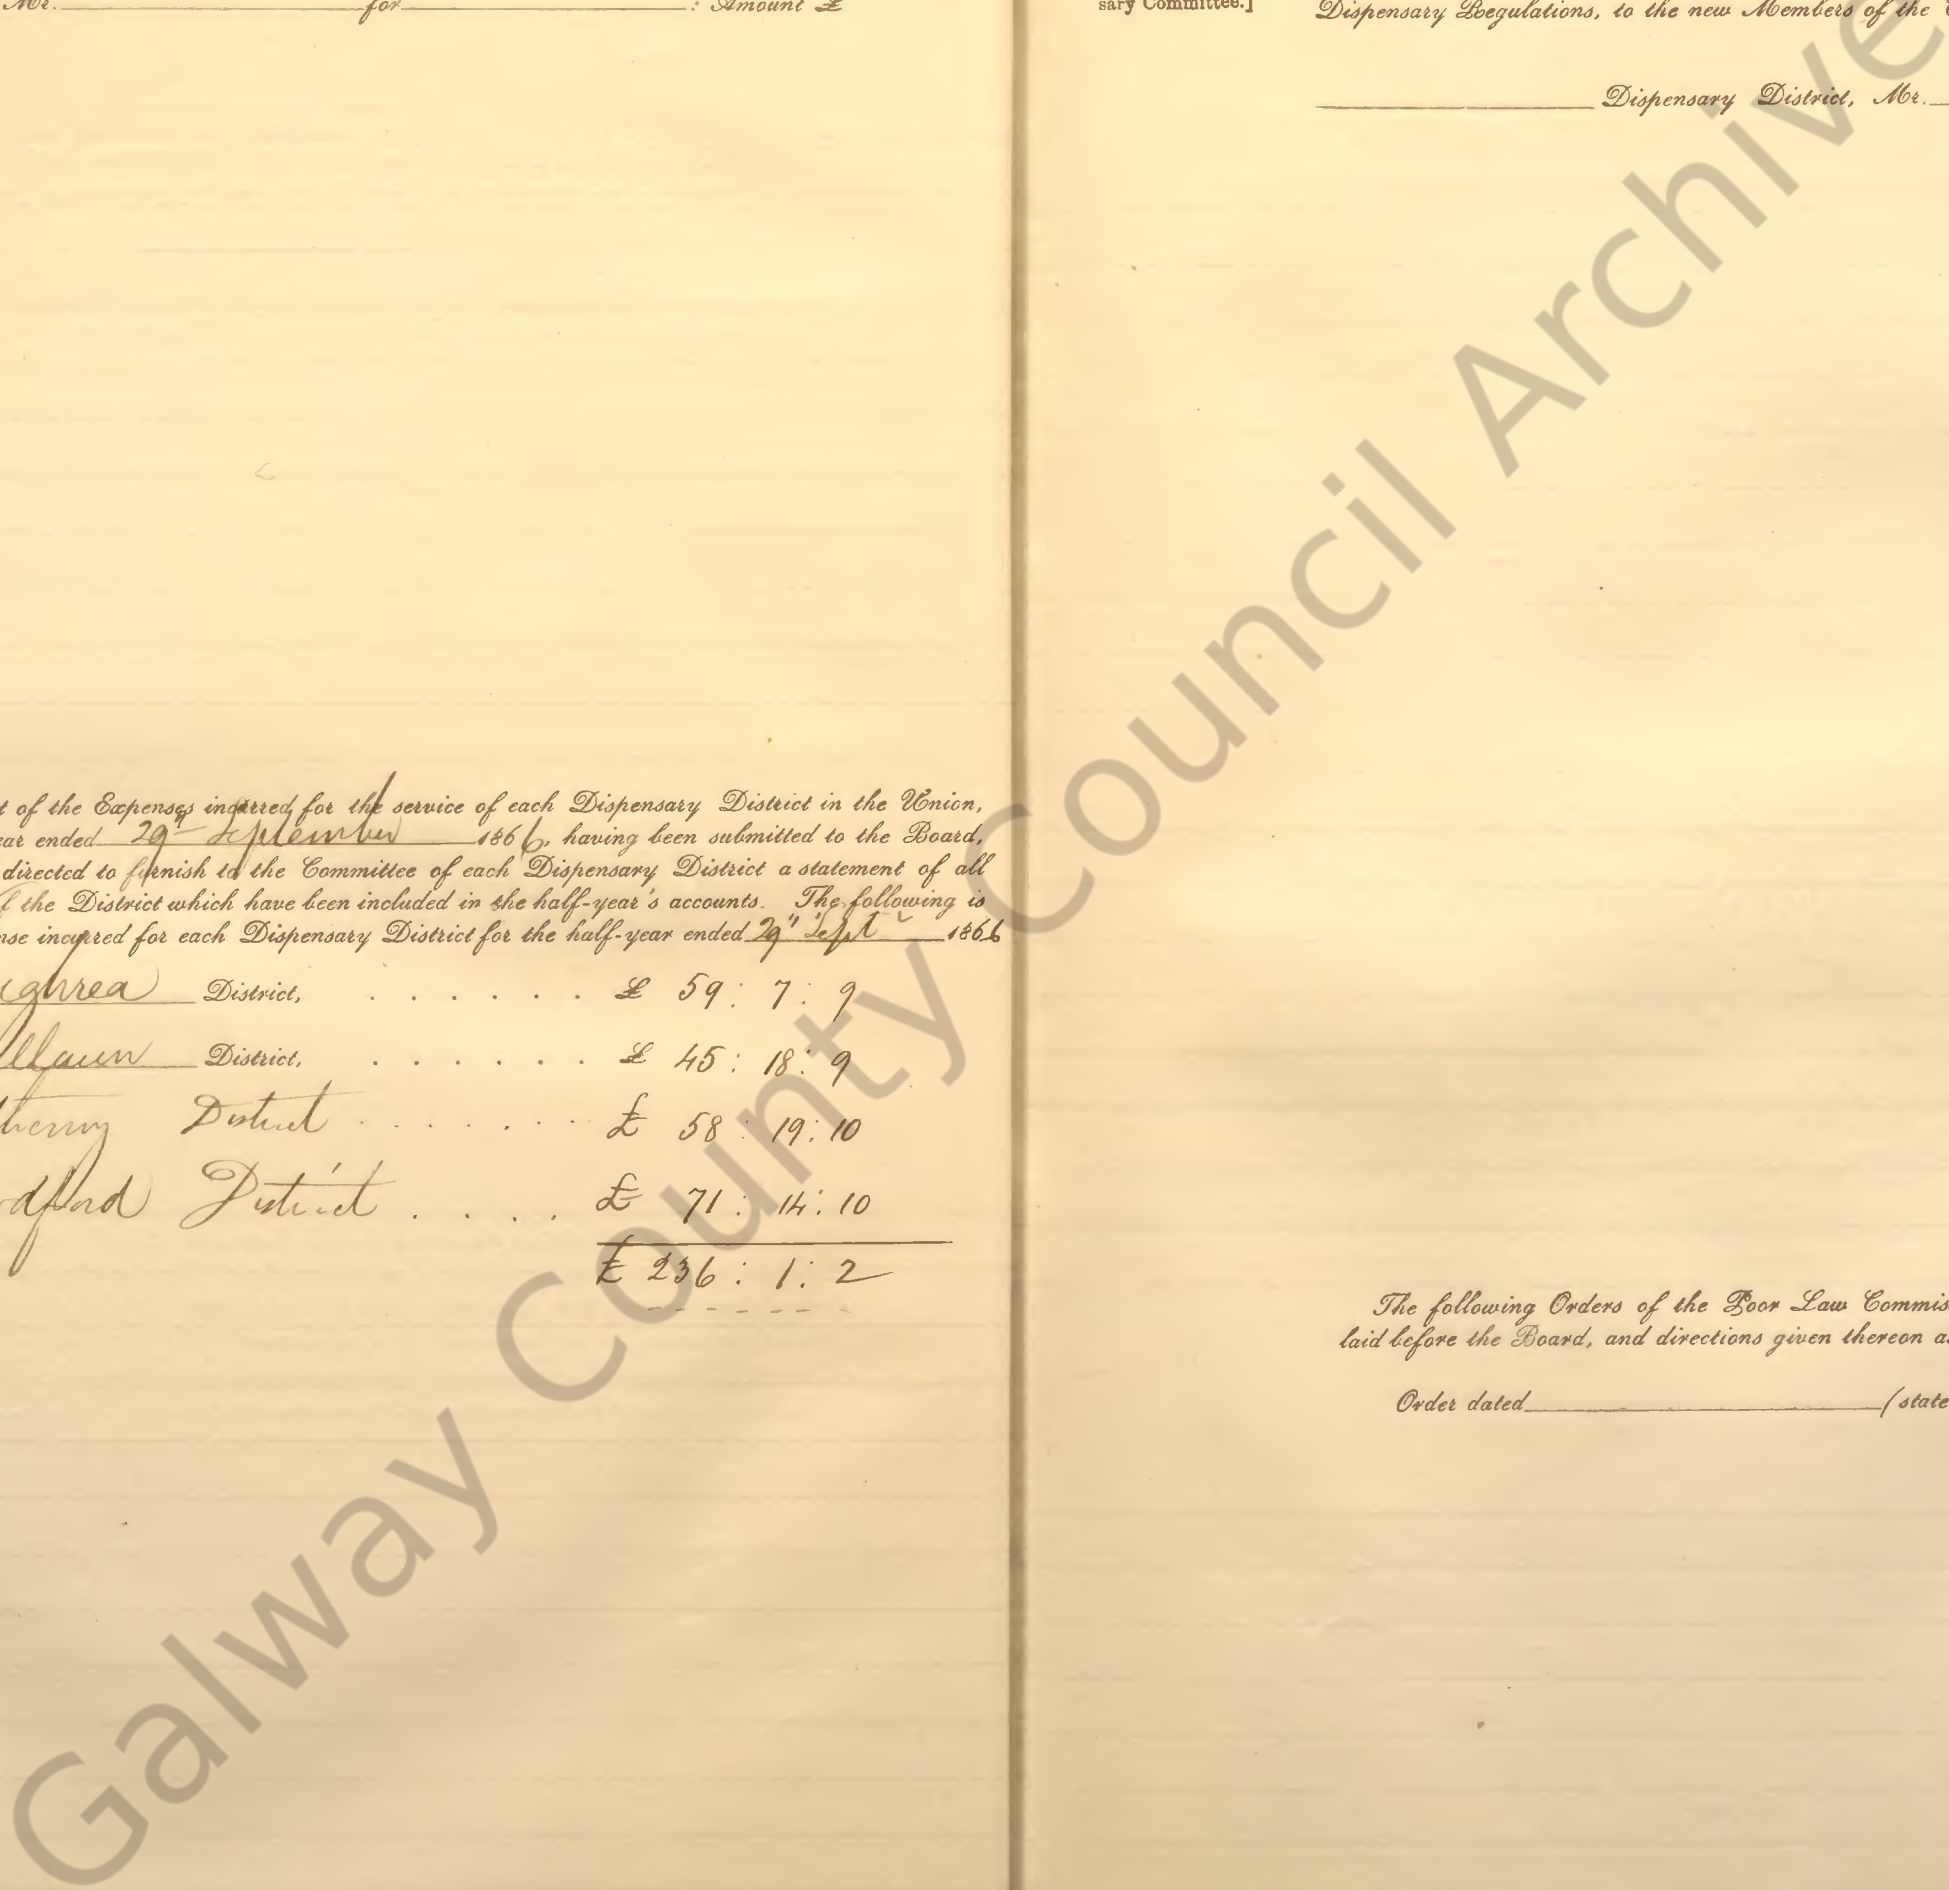 Mr. for : Amount £
t of the Expenses incurred for the service of each Dispensary District in the Union,
ear ended 29th September 1866, having been submitted to the Board,
directed to furnish to the Committee of each Dispensary District a statement of all
f the District which have been included in the half-year's accounts. The following is
nse incurred for each Dispensary District for the half-year ended 29" Sept 1866
ghrea District, . . . . . . £ 59 : 7 : 9
llaun District, . . . . . . £ 45 : 18 : 9
thenry District . . . . . . . £ 58 : 19 : 10
dford District . . . . £ 71 : 14 : 10
£ 236 : 1 : 2
sary Committee.]
Dispensary Regulations, to the new Members of the
Dispensary District, Mr.
The following Orders of the Poor Law Commis
laid before the Board, and directions given thereon a
Order dated (state
Galway County Council Archive